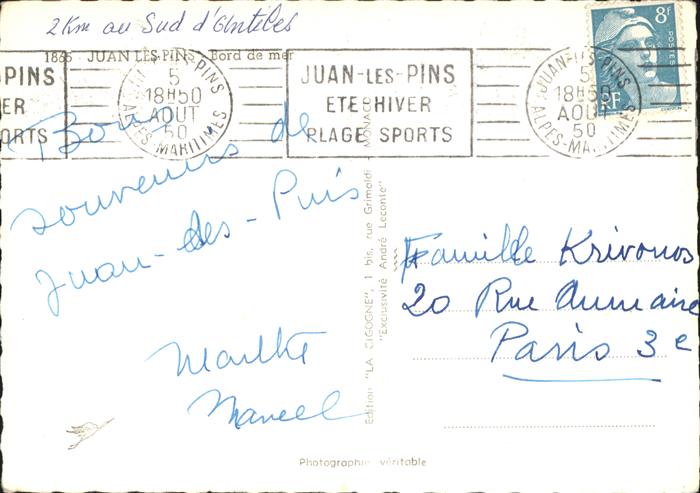 2 Km au Sud d'Antibes
1865 - JUAN LES-PINS - Bord de mer
-PINS
ER
PORTS
JUAN-LES-PINS
5
18H50
AOUT
50
ALPES-MARITIMES
JUAN-LES-PINS
ETE & HIVER
PLAGE SPORTS
JUAN-LES-PINS
5
18H50
AOUT
50
ALPES-MARITIMES
8f
POSTES
RF
Bons
souvenirs de
Juan-des-Puis
Marthe
Marcel
Edition "LA CIGOGNE", 1 bis, rue Grimaldi MONACO
"Exclusivité André Leconte"
Famille Krivonos
20 Rue Aumaire
Paris 3e
Photographie véritable